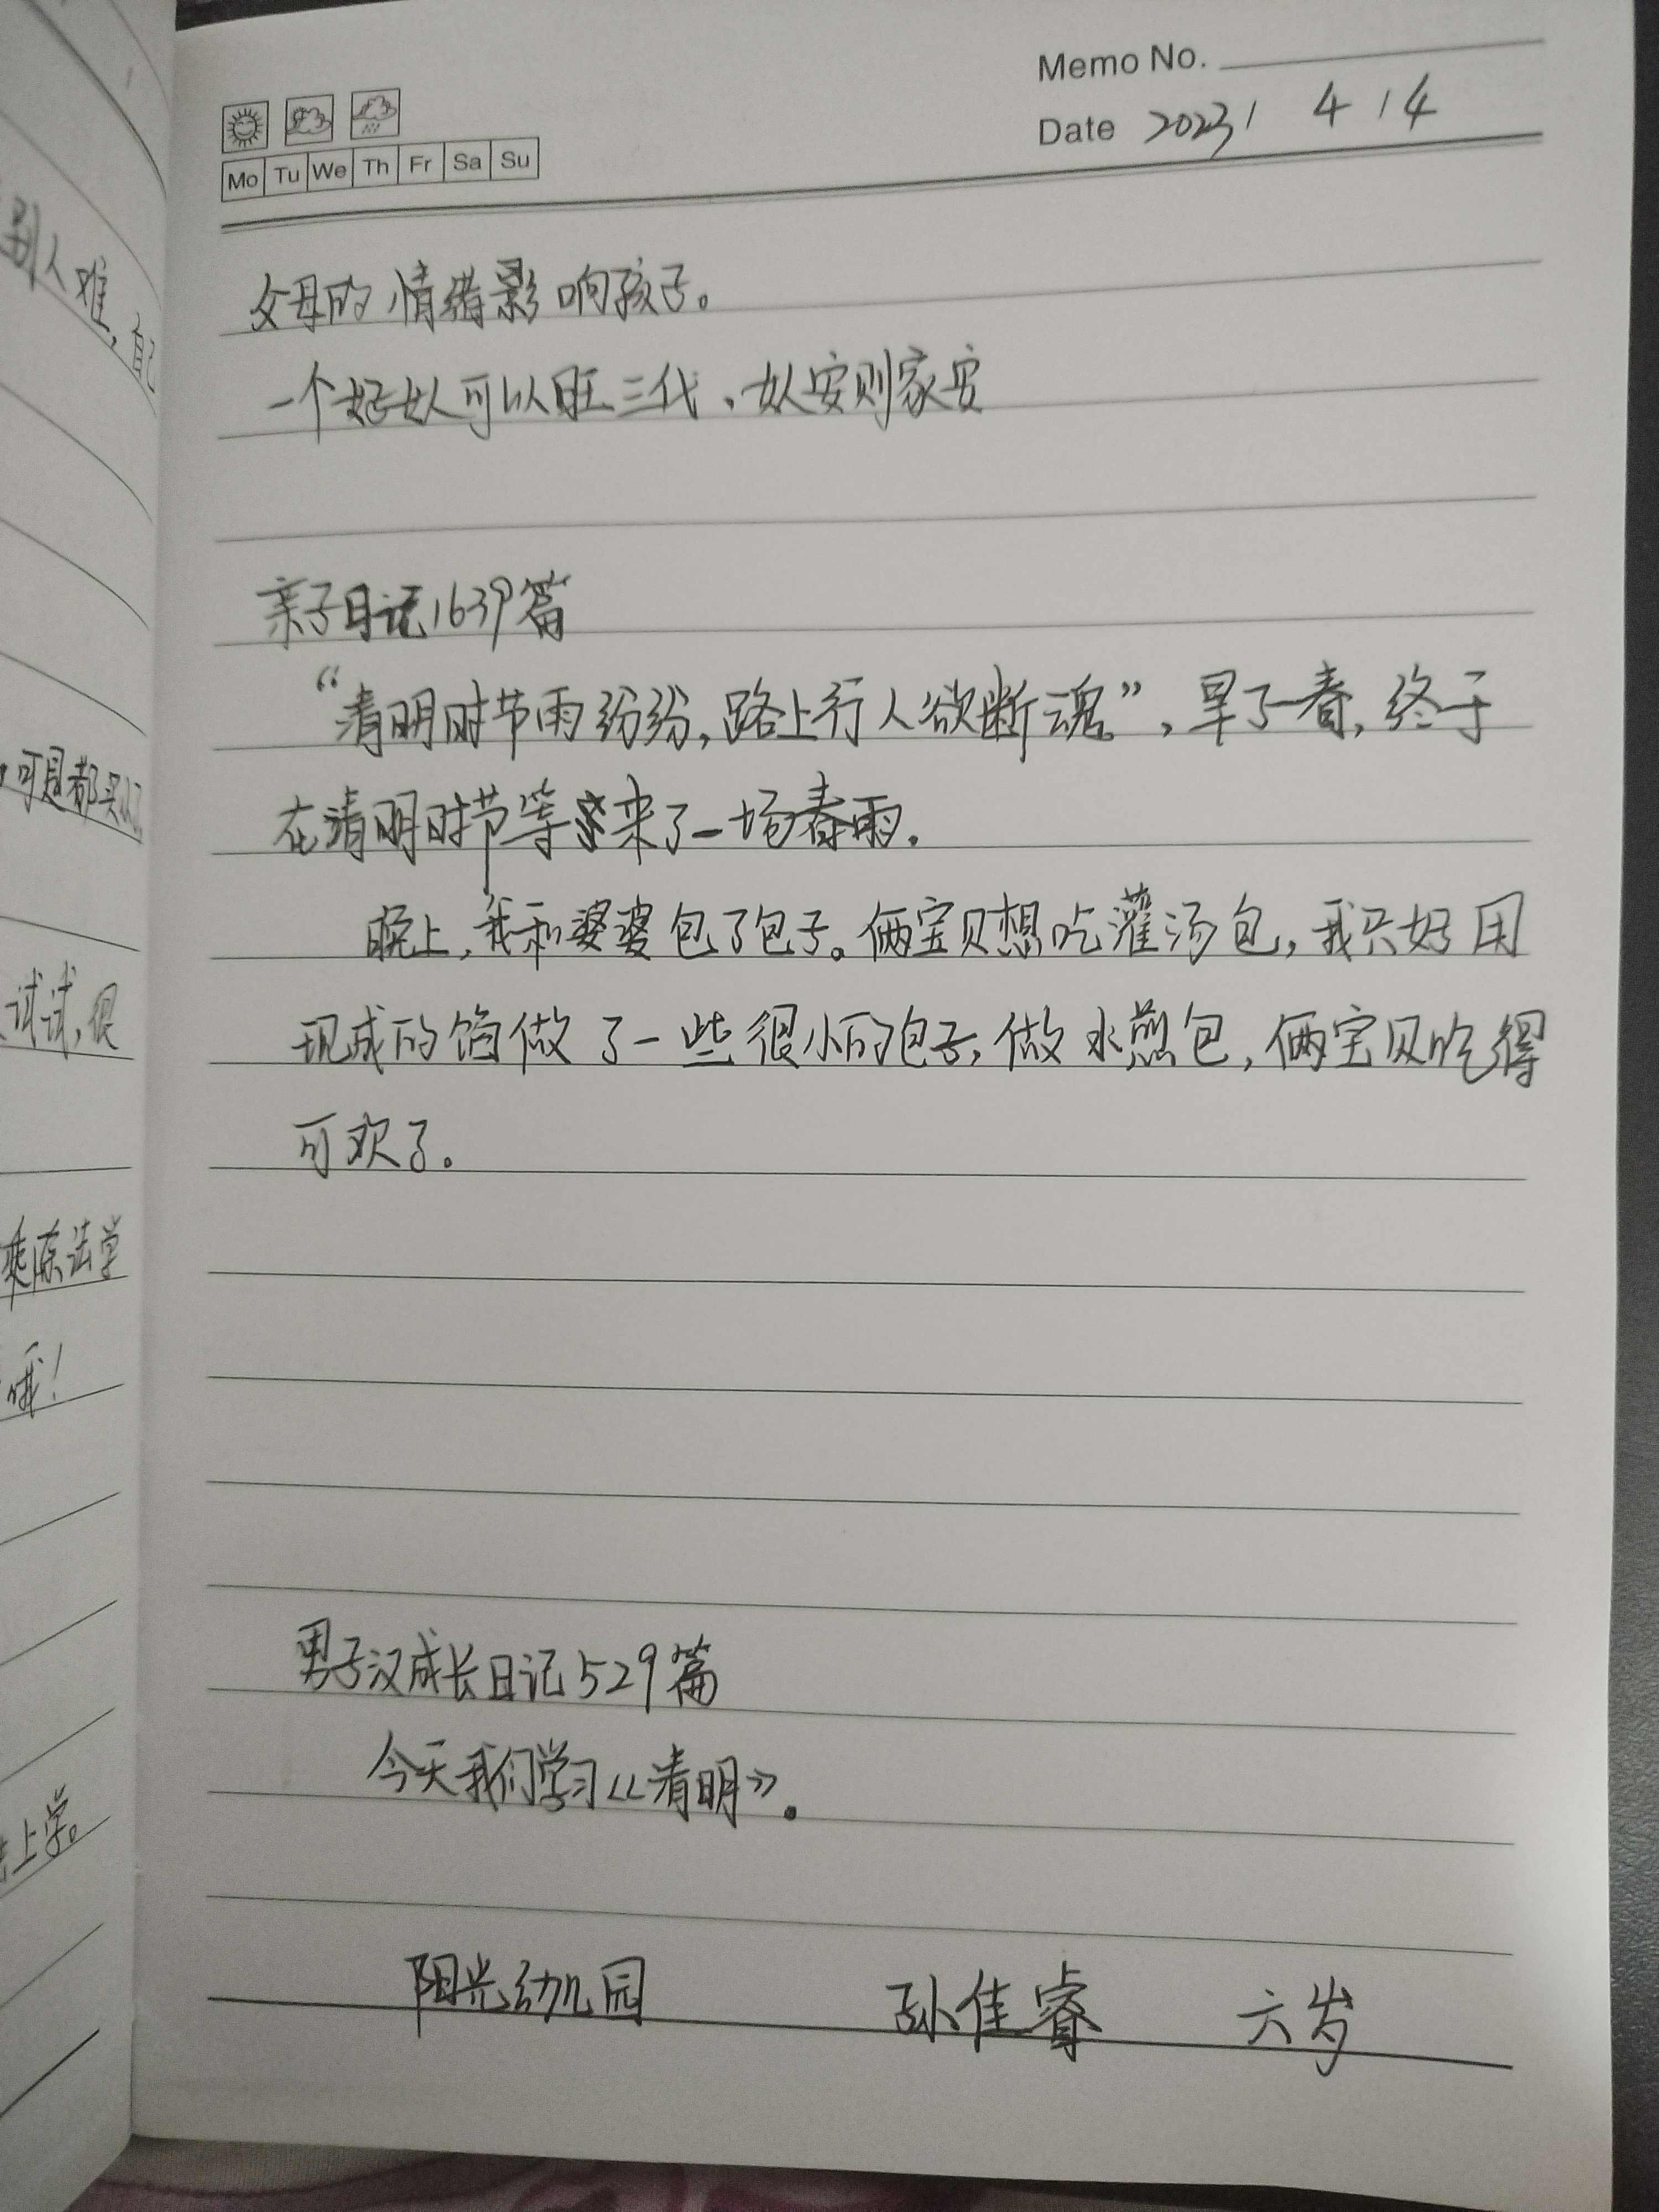 Memo No.
Date 2023 / 4 / 4
Mo Tu We Th Fr Sa Su
父母的情绪影响孩子。
一个好女人可以旺三代、女人安则家安
亲子日记1639篇
“清明时节雨纷纷,路上行人欲断魂。”,旱了一春,终于
在清明时节等来了一场春雨.
晚上,我和婆婆包了包子。俩宝贝想吃灌汤包,我只好用
现成的馅做了一些很小的包子,做水煎包,俩宝贝吃得
可欢了。
男子汉成长日记529篇
今天我们学习《清明》。
阳光幼儿园 孙佳睿 六岁
别人难,自己
可是都
试试,很
乘除法学
哦!
上学。